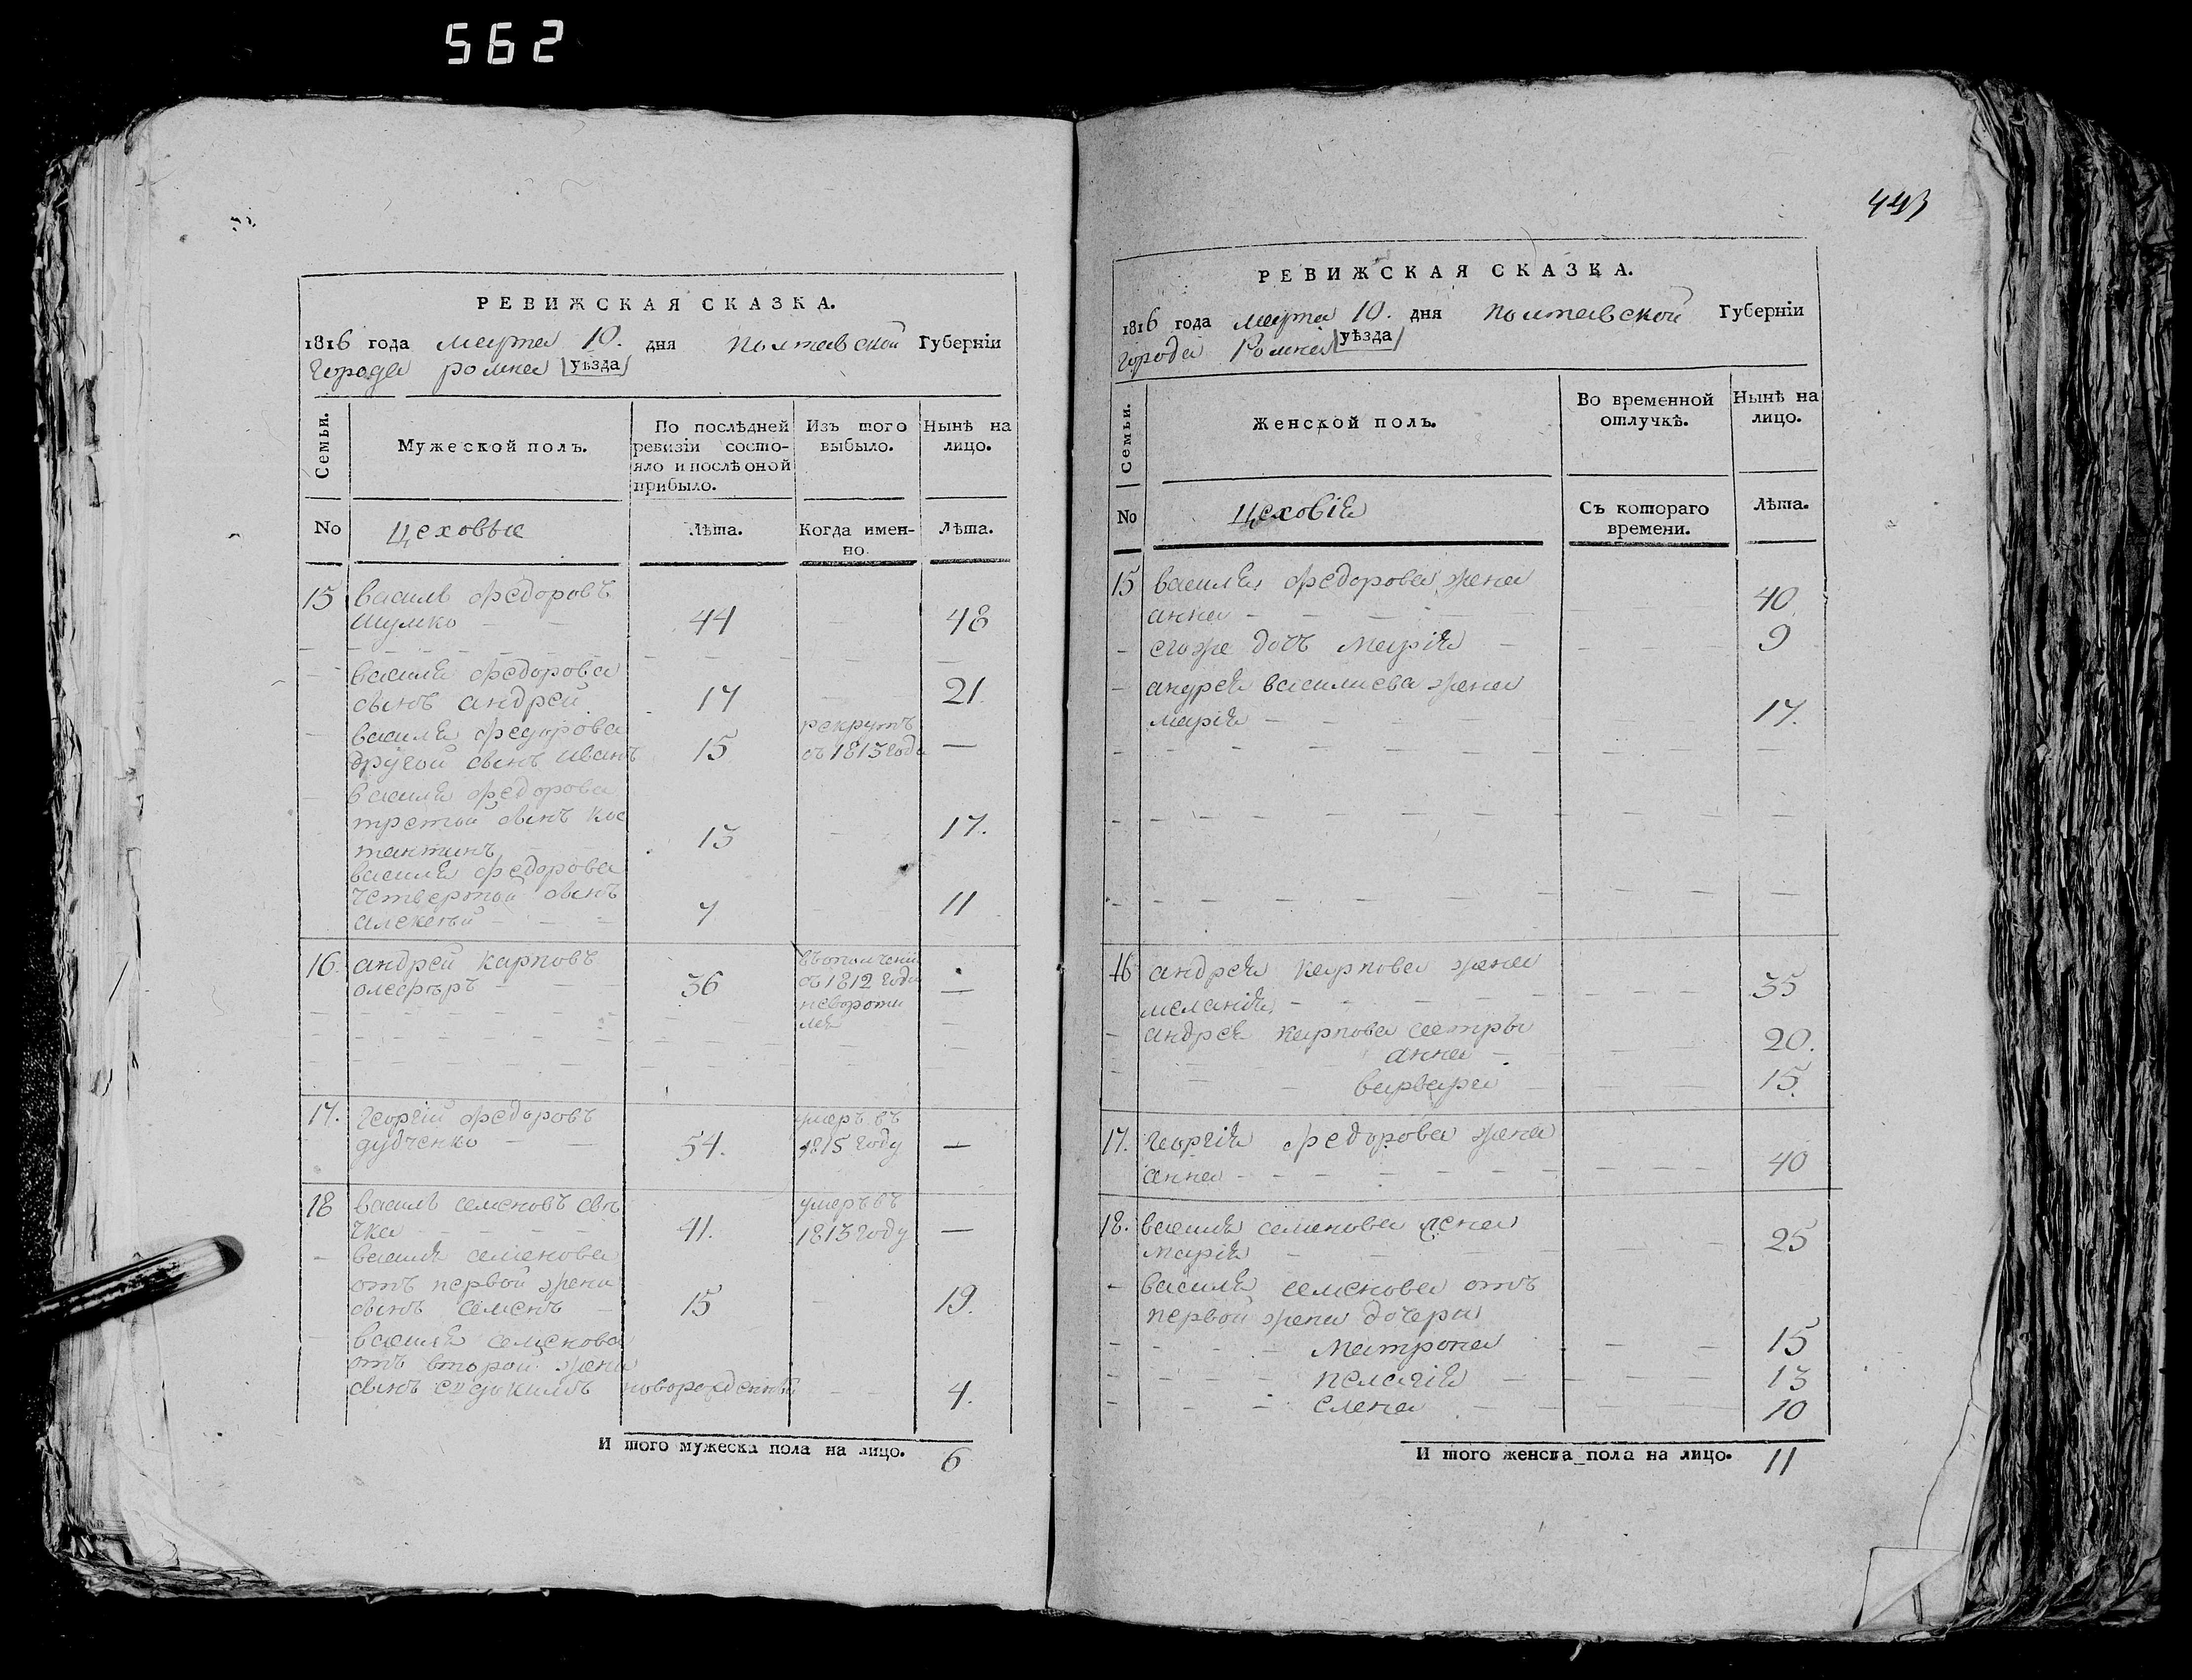 562
РЕВИЖСКАЯ СКАЗКА.
1816 года марта 10. дня полтавской Губерніи
Города ромна уѣзда
Семьи.
Мужеской полъ.
По послѣдней ревизіи состо-
яло и послѣ оной прибыло.
Изъ того выбыло.
Нынѣ на лицо.
No Цеховые Лѣта. Когда имен-
но. Лѣта.
15 василь федоровъ
шумко 44 48
василя федорова
сынъ андрей 17 21.
василя федорова рекрутъ
другой сынъ иванъ 15 съ 1813 года —
василя федорова
третой сынъ кос
тантинъ 13 17.
василя федорова
четвертой сынъ
алексѣй 7 11
16. андрей карповъ въополчени
36 съ 1812 года —
невороти
лся
17. георгій федоровъ умеръ въ
дудченко 54. 1815 году —
18 василь семеновъ свѣ умеръ въ
чка 41. 1813 году —
василя семенова
отъ первой жени
сынъ семенъ 15 19.
василя семенова
отъ второй жени
сынъ евдокимъ новорожденны 4.
И того мужеска пола на лицо. 6
443
РЕВИЖСКАЯ СКАЗКА.
1816 года марта 10. дня полтавской Губерніи
города Ромна уѣзда
Семьи.
Женской полъ.
Во временной отлучкѣ.
Нынѣ на лицо.
No Цеховія Съ котораго времени. Лѣта.
15 василя федорова жена
анна 40
егоже дочъ марія 9
андрея василиева жена
марія 17.
16 андрея карпова жена
меланія 35
андрея карпова сестры
анна 20.
варвара 15.
17. георгія федорова жена
анна 40
18. василя семенова жена
марія 25
василя семенова отъ
первой жени дочери
матрона 15
пелагія 13
елена 10
И того женска пола на лицо. 11